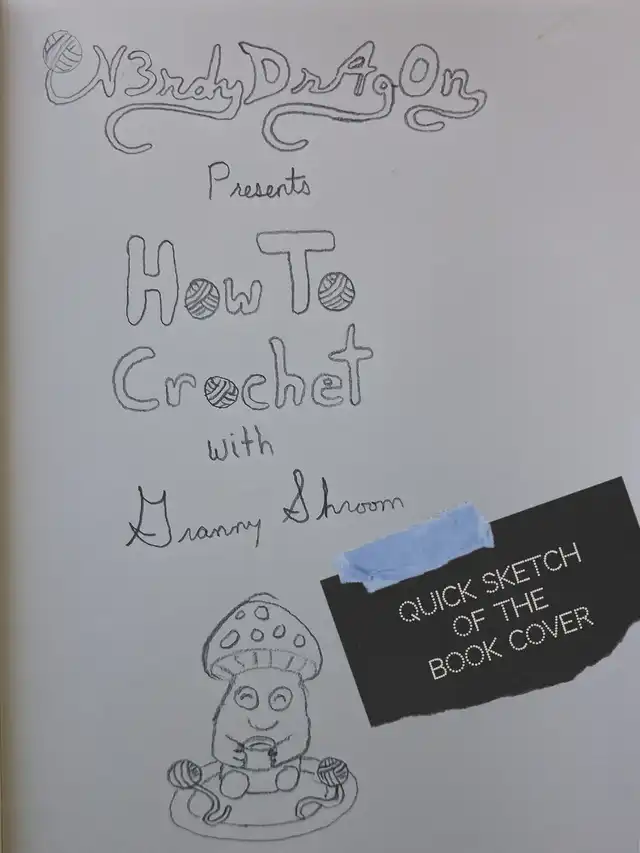 N3rdyDrAgOn
Presents
How To
Crochet
with
Granny Shroom
QUICK SKETCH
OF THE
BOOK COVER